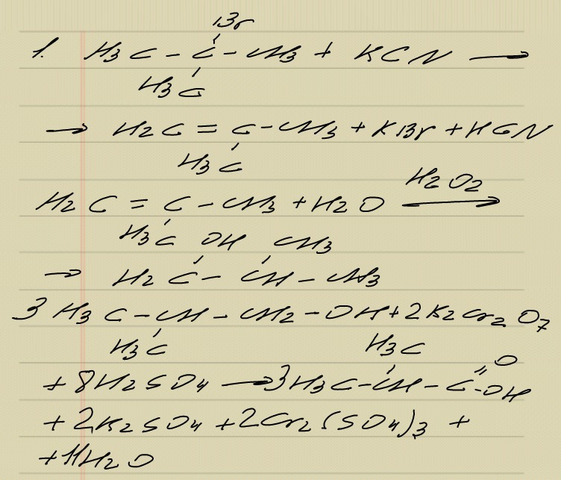 Br
1. H3C - C - CH3 + KCN →
H3C
→ H2C = C - CH3 + KBr + HCN
H3C
H2C = C - CH3 + H2O →
H2O2
H3C OH CH3
→ H2C - CH - CH3
3 H3C - CH - CH2 - OH + 2K2Cr2O7
H3C H3C O
+ 8H2SO4 → 3H3C - CH - C - OH
+ 2K2SO4 + 2Cr2(SO4)3 +
+ 11H2O